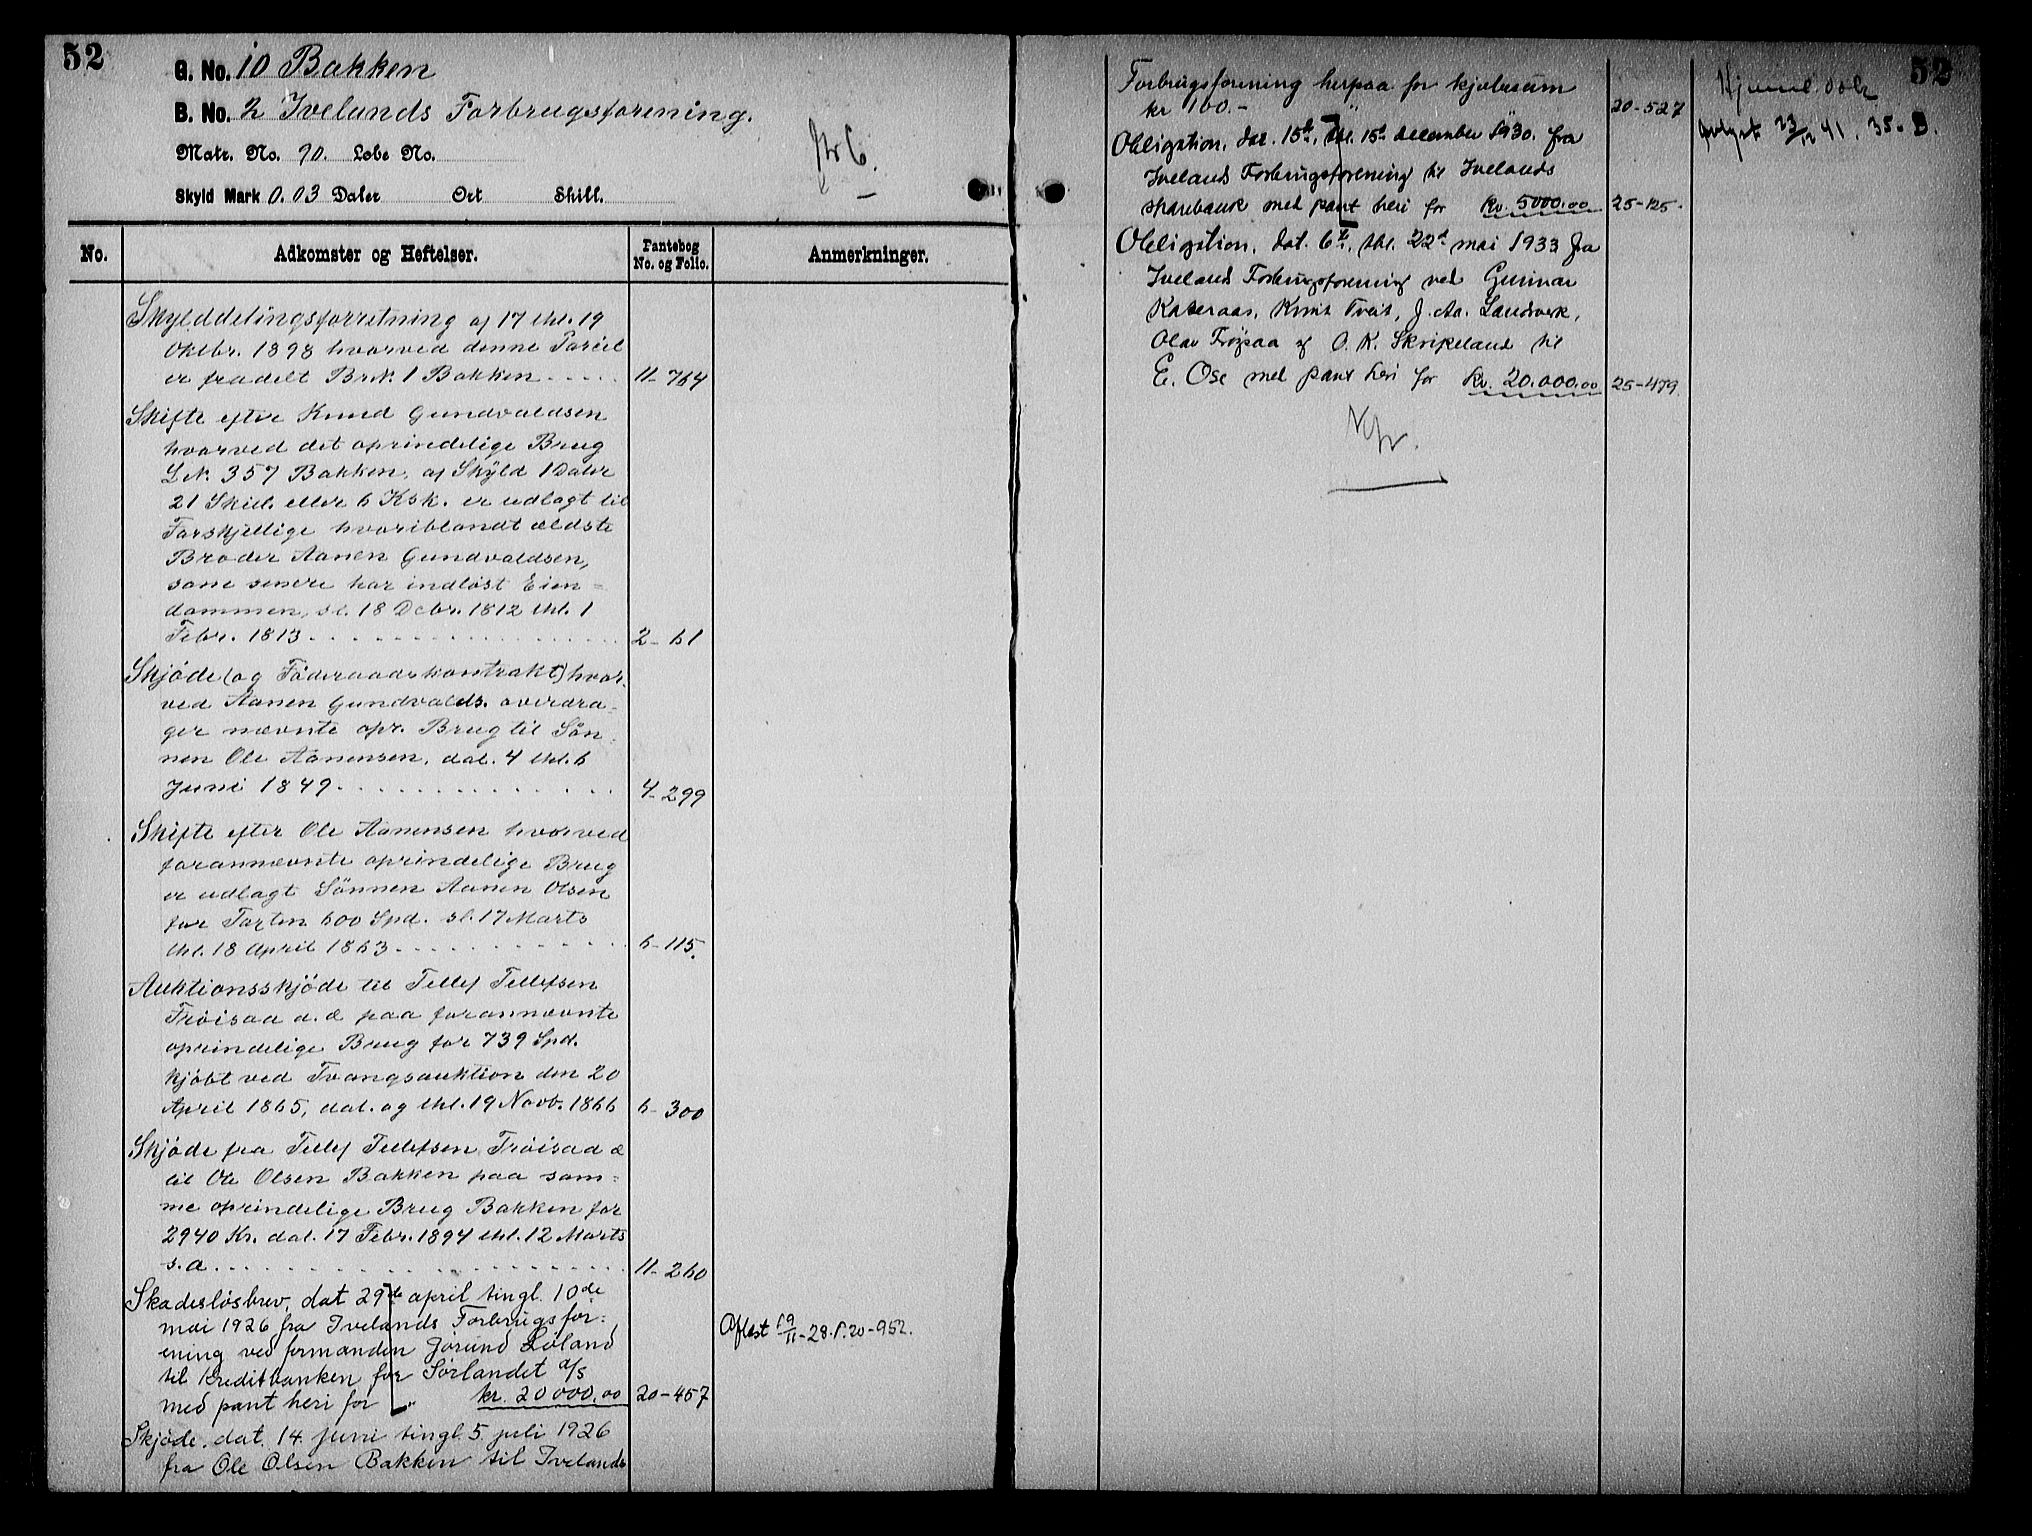 52
G. No. 10 Bakken
B. No. 2 Ivelands Forbrugsforening.
Matr. No. 90. Løbe No.
Skyld Mark 0.03 Daler Ort Skill.
No. Adkomster og Heftelser. Pantebog No. og Folio. Anmerkninger.
Skylddelingsforretning af 17 thl. 19
Oktbr. 1898 hvorved denne Parcil
er fradelt Brk. 1 Bakken . . . . . 11-764
Skifte efter Knud Gundvaldsen
hvorved det oprindelige Brug
L.N. 357 Bakken, af Skÿld 1 Daler
21 Skill. eller 6 Ksk. er udlagt til
Forskjellige hvoriblandt ældste
Broder Aanen Gundvaldsen,
som senere har indløst Eien=
dommen, sl. 18 Dcbr. 1812 thl. 1
Febr. 1813 . . . . . . . . . . 2-61
Skjøde (og Føderaadskontrakt) hvor-
ved Aanen Gundvalds. overdra-
ger nævnte opr. Brug til Søn-
nen Ole Aanensen, dat. 4 thl. 6
Juni 1849 . . . . . . . . . . 4-299
Skifte efter Ole Aanensen hvorved
forannævnte oprindelige Brug
er udlagt Sønnen Aanen Olsen
for Taxten 600 Spd. sl. 17 Marts
thl. 18 April 1863 . . . . . . . . 6-115.
Auktionsskjøde til Tellef Tellefsen
Frøisaa a.d paa forannævnte
oprindelige Brug for 739 Spd.
kjøbt ved Tvangsauktion den 20
April 1865, dat. og thl. 19 Novb. 1866 6-300
Skjøde fra Tellef Tellefsen Frøisaa d
til Ole Olsen Bakken paa sam=
me oprindelige Brug Bakken for
2940 Kr. dat. 17 Febr. 1894 thl. 12 Marts
s.a . . . . . . . . . . 11-260
Skadesløsbrev, dat 29de april tingl. 10de
mai 1926 fra Ivelands Forbrugsfor=
ening ved formanden Jørund Løland
til Kreditbanken for Sørlandet a/s
med pant heri for " kr. 20000.00 20-457
Aflæst 19/11-28. P. 20-952.
Skjøde, dat. 14. juni tingl. 5. juli 1926
fra Ole Olsen Bakken til Ivelands
No 6.
52
Forbrugsforening herpaa for kjøbesum
kr 100.- " 20-527
Obligation, dat. 15d, thl. 15d december 1930. fra
Iveland Forbrugsforening til Ivelands
sparebank med pant heri for kr. 5000.00 25-125.
Obligation, dat. 6t, thl. 22d mai 1933 fra
Iveland Forbrugsforening ved Gunnar
Kateraas, Knut Tveit, J. Aa. Landverk,
Olav Frøysaa og O. K. Skripeland til
E. Ose med pant heri for kr. 20.000.00 25-479.
23/12 41. 35. B.